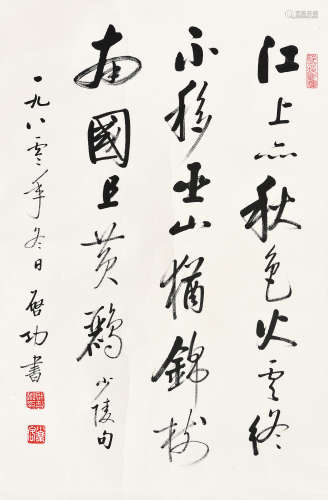 江上亦秋色火雲終
不移巫山猶錦樹
南國且黃鸝 少陵句
一九八零年冬日 启功書